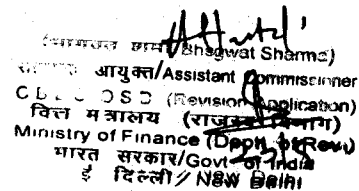 (भागवत शर्मा/Bhagwat Sharma)
सहायक आयुक्त/Assistant Commissioner
C B E C OSD (Revision Application)
वित्त मंत्रालय (राजस्व विभाग)
Ministry of Finance (Deptt of Rev.)
भारत सरकार/Govt of India
ई दिल्ली/New Delhi